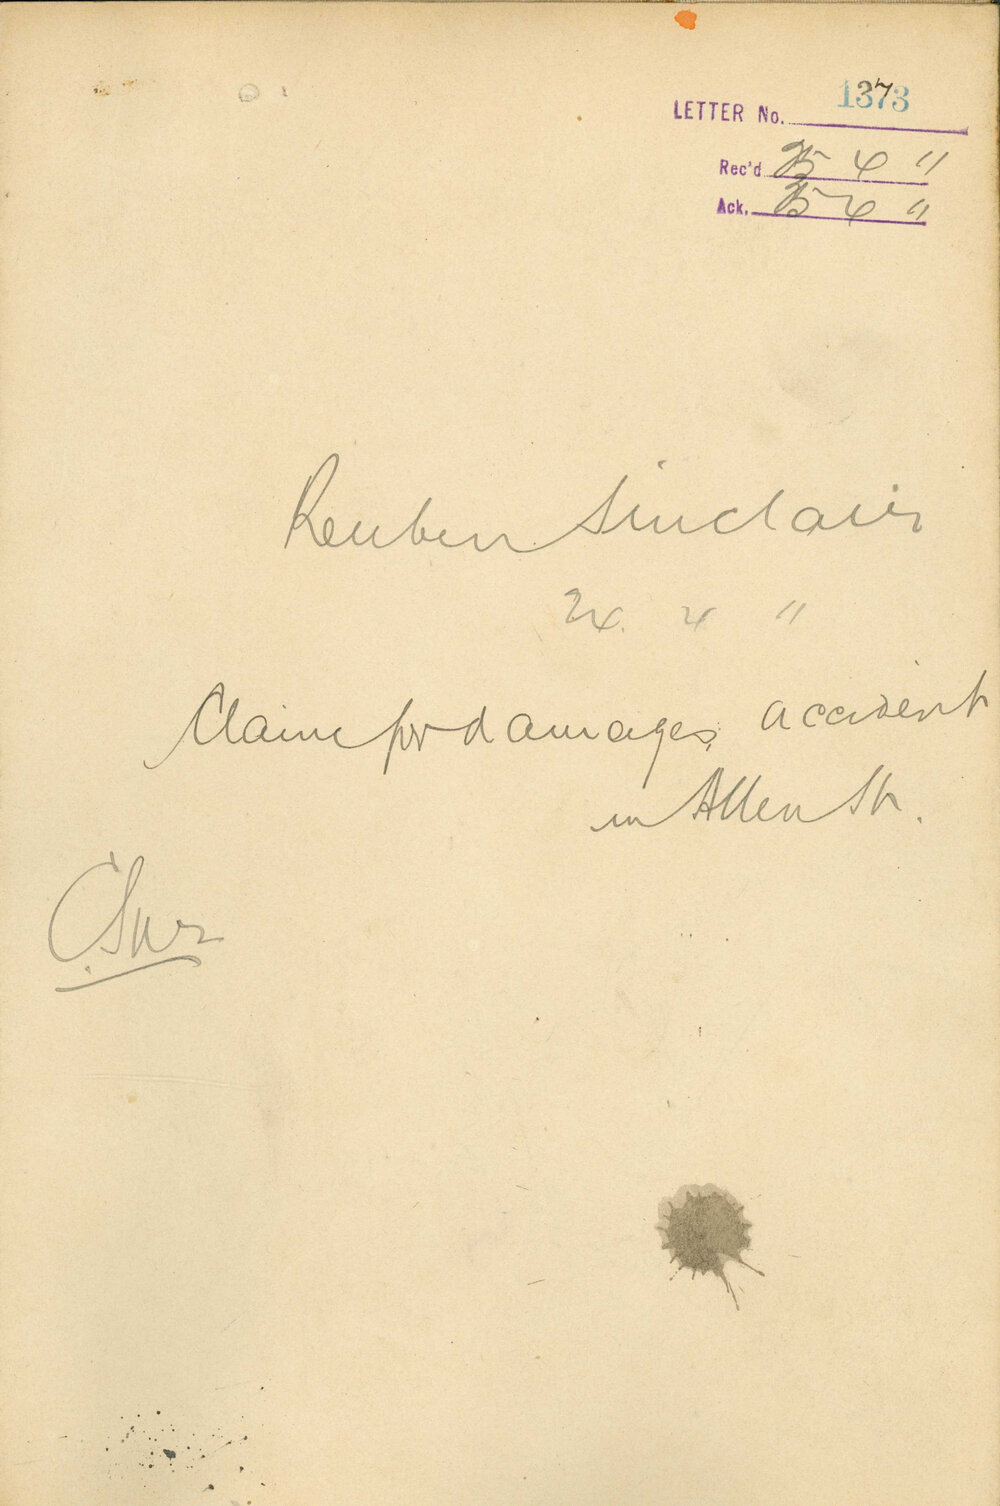 LETTER No. 1373
Rec'd 25 4 11
Ack. 25 4 11
Reuben Sinclair
24. 4 11
Claim for damages, accident
in Allen St.